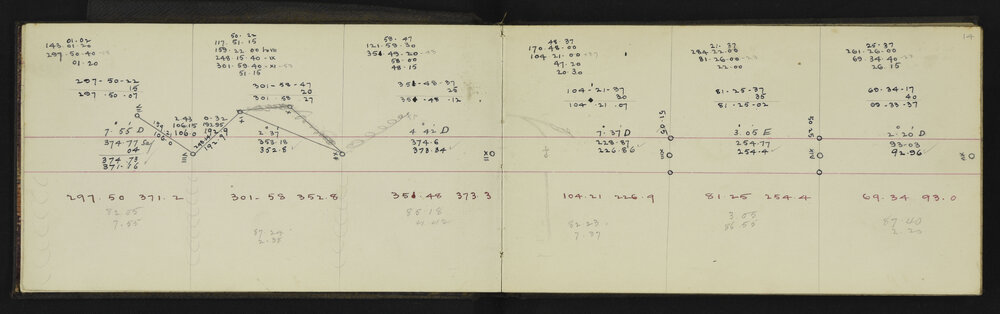 14
01.02
143.01.20
297-50-40
01.20
297-50-22
15
297.50.07
7.55 D
374.77
04
374.73
371.16
297.50 371.2
82.05
7.55
50.22
117.51.15
159.22.00
248.15.40
301.59.40
51.15
301-58-47
20
301.58 27
2.43 0.32
106.15 192.95
106.0 192.9
2.37
353.18
352.8
301.58 352.8
87.24
2.38
59.47
121.59.30
351-49-20
58.00
48.15
351-48-37
25
351-48-12
4.42 D
374.6
373.34
351.48 373.3
85.18
4.42
48.37
170.48-00
104.21-00
47.20
20.30
104-21-37
30
104.21.07
7.37 D
228.87
226.86
104.21 226.9
82.23
7.37
21.37
284.22.00
81-26-00
22.00
81.25-37
35
81-25-02
3.05 E
254.77
254.4
81.25 254.4
3.05
86.55
25.37
261-26-00
69.34-40
26.15
69.34-17
40
69-33-37
2.20 D
93.03
92.96
69.34 93.0
87.40
2.20